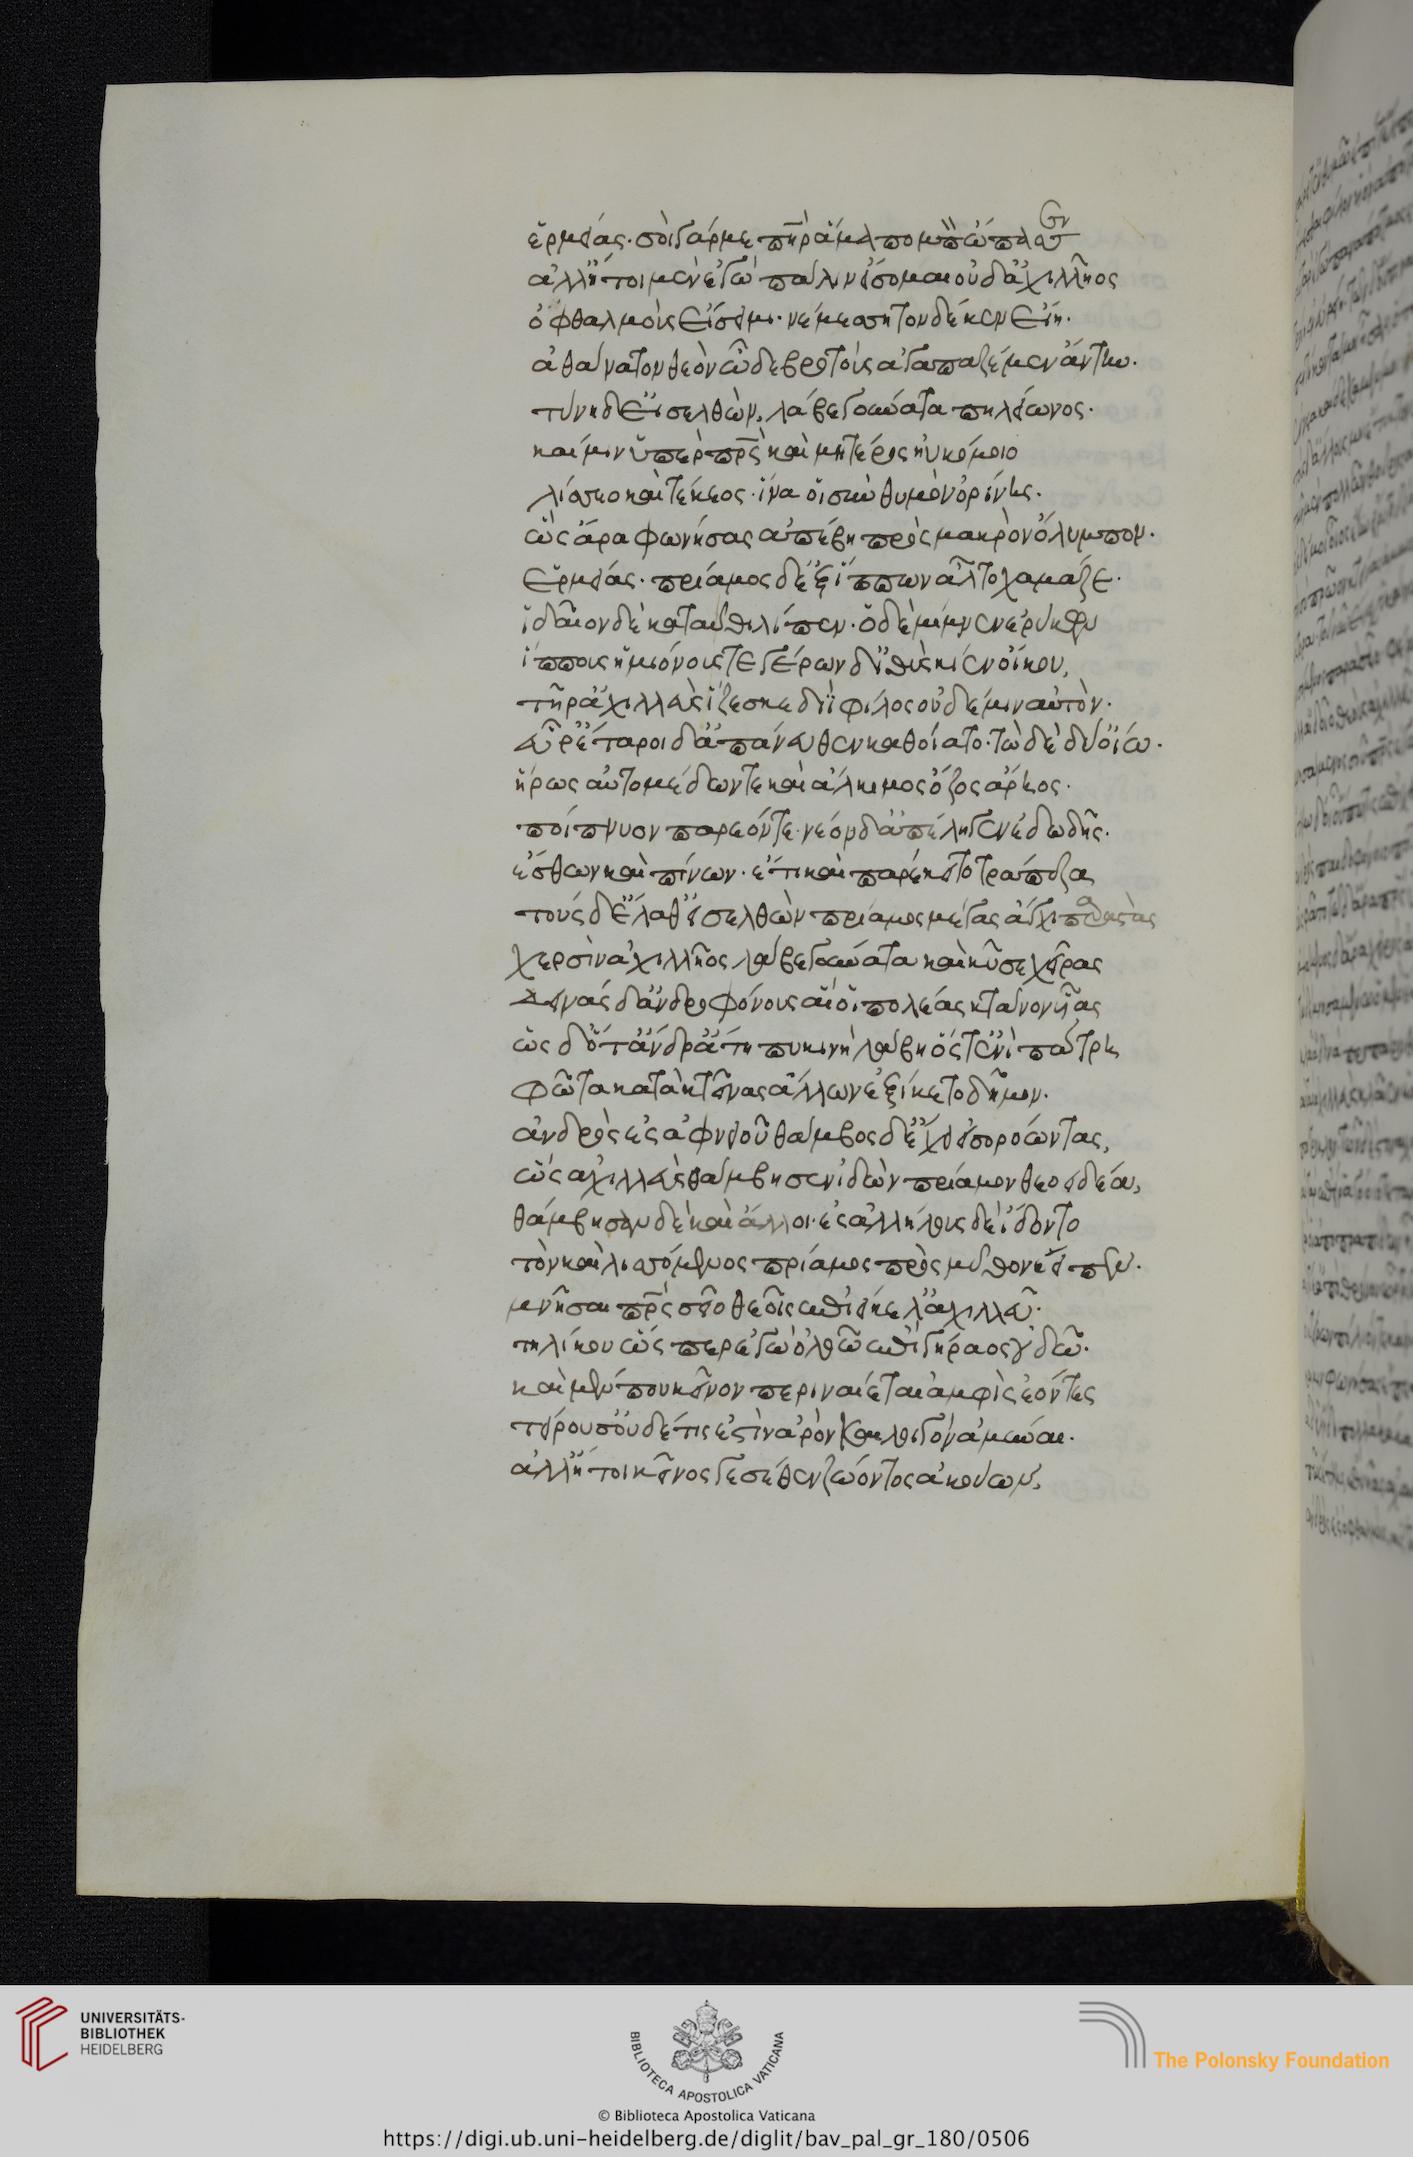 ἑρμείας· σοὶ γάρ με πατὴρ ἅμα πομπὸν ὄπασεν
ἀλλ' ἤτοι μὲν ἐγὼ πάλιν εἴσομαι οὐδ' ἀχιλλῆος
ὀφθαλμοὺς εἴσειμι· νεμεσσητὸν δέ κεν εἴη·
ἀθάνατον θεὸν ὧδε βροτοὺς ἀγαπαζέμεν ἄντην·
τύνη δ' εἰσελθὼν, λάβε γούνατα πηλείωνος·
καί μιν ὑπὲρ πρς καὶ μητέρος ἠυκόμοιο
λίσσεο καὶ τέκεος· ἵνα οἱ σὺν θυμὸν ὀρίνῃς·
ὣς ἄρα φωνήσας ἀπέβη πρὸς μακρὸν ὄλυμπον·
ἑρμείας· πρίαμος δ' ἐξ ἵππων ἆλτο χαμᾶζε·
ἰδαῖον δὲ κατ' αὖθι λίπεν· ὁ δὲ μίμνεν ἐρύκων
ἵππους ἡμιόνους τε γέρων δ' ἰθὺς κίεν οἴκου,
τῇ ῥ' ἀχιλλεὺς ἵζεσκε διῒ φίλος οὐδέ μιν αὐτὸν·
εὗρ' ἕταροι δ' ἀπάνευθεν καθείατο· τὼ δὲ δύ' οἴω·
ἥρως αὐτομέδων τε καὶ ἄλκιμος ὄζος ἄρηος·
ποίπνυον παρεόντε· νέον δ' ἀπέληγεν ἐδωδῆς·
ἔσθων καὶ πίνων· ἔτι καὶ παρέκειτο τράπεζα
τοὺς δ' ἔλαθ' εἰσελθὼν πρίαμος μέγας ἄγχι παραστὰς
χερσὶν ἀχιλλῆος λάβε γούνατα καὶ κῦσε χεῖρας
δεινὰς ἀνδροφόνους αἵ οἱ πολέας κτάνον υἷας
ὡς δ' ὅτ' ἂν ἄνδρ' ἄτη πυκινὴ λάβῃ ὅς τ' ἐνὶ πάτρῃ
φῶτα κατακτείνας ἄλλων ἐξίκετο δῆμον·
ἀνδρὸς ἐς ἀφνειοῦ θάμβος δ' ἔχει εἰσορόωντας,
ὣς ἀχιλλεὺς θάμβησεν ἰδὼν πρίαμον θεοειδέα,
θάμβησαν δὲ καὶ ἄλλοι· ἐς ἀλλήλους δὲ ἴδοντο
τὸν καὶ λισσόμενος πρίαμος πρὸς μῦθον ἔειπεν·
μνῆσαι πρς σεῖο θεοῖς ἐπιείκελ' ἀχιλλεῦ·
τηλίκου ὥς περ ἐγὼν ὀλοῷ ἐπὶ γήραος οὐδῷ·
καὶ μέν που κεῖνον περιναιέται ἀμφὶς ἐόντες
τείρουσ' οὐδέ τις ἐστὶν ἀρὴν καὶ λοιγὸν ἀμῦναι·
ἀλλ' ἤτοι κεῖνος γε σέθεν ζώοντος ἀκούων,
UNIVERSITÄTS-
BIBLIOTHEK
HEIDELBERG
BIBLIOTECA APOSTOLICA VATICANA
The Polonsky Foundation
© Biblioteca Apostolica Vaticana
https://digi.ub.uni-heidelberg.de/diglit/bav_pal_gr_180/0506